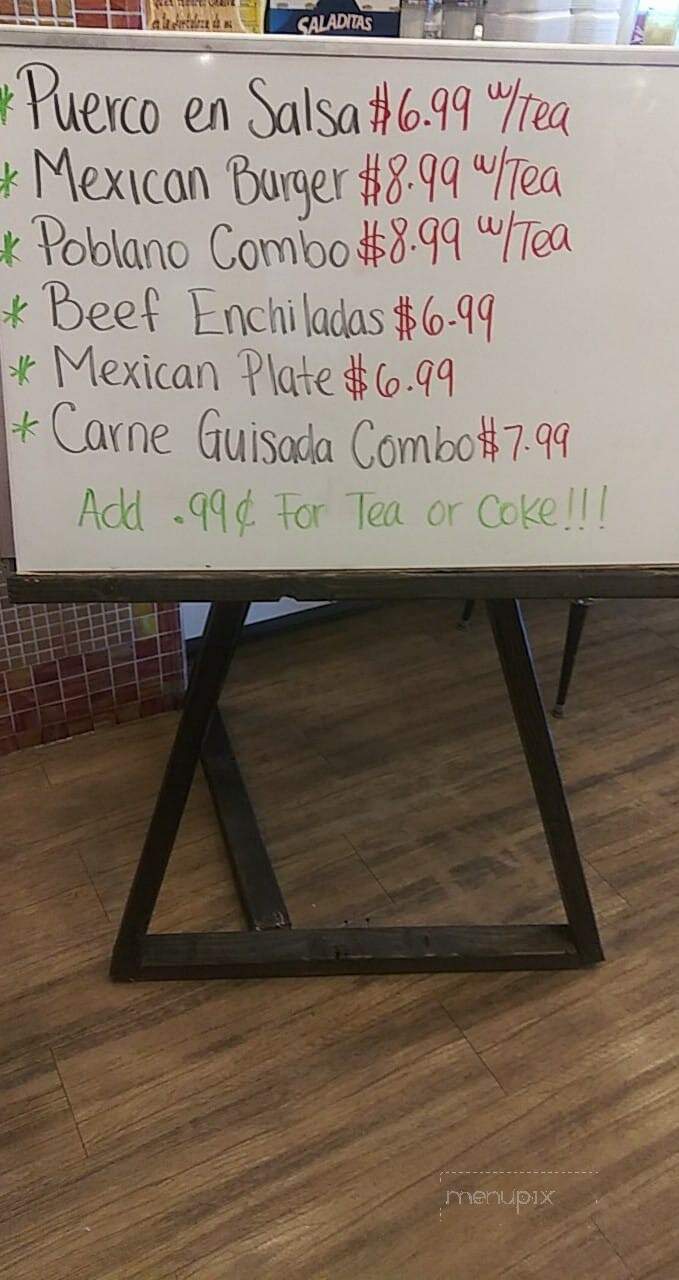 SALADITAS
* Puerco en Salsa $6.99 w/tea
* Mexican Burger $8.99 w/Tea
* Poblano Combo $8.99 w/Tea
* Beef Enchiladas $6.99
* Mexican Plate $6.99
* Carne Guisada Combo $7.99
Add .99¢ For Tea or Coke!!!
menupix